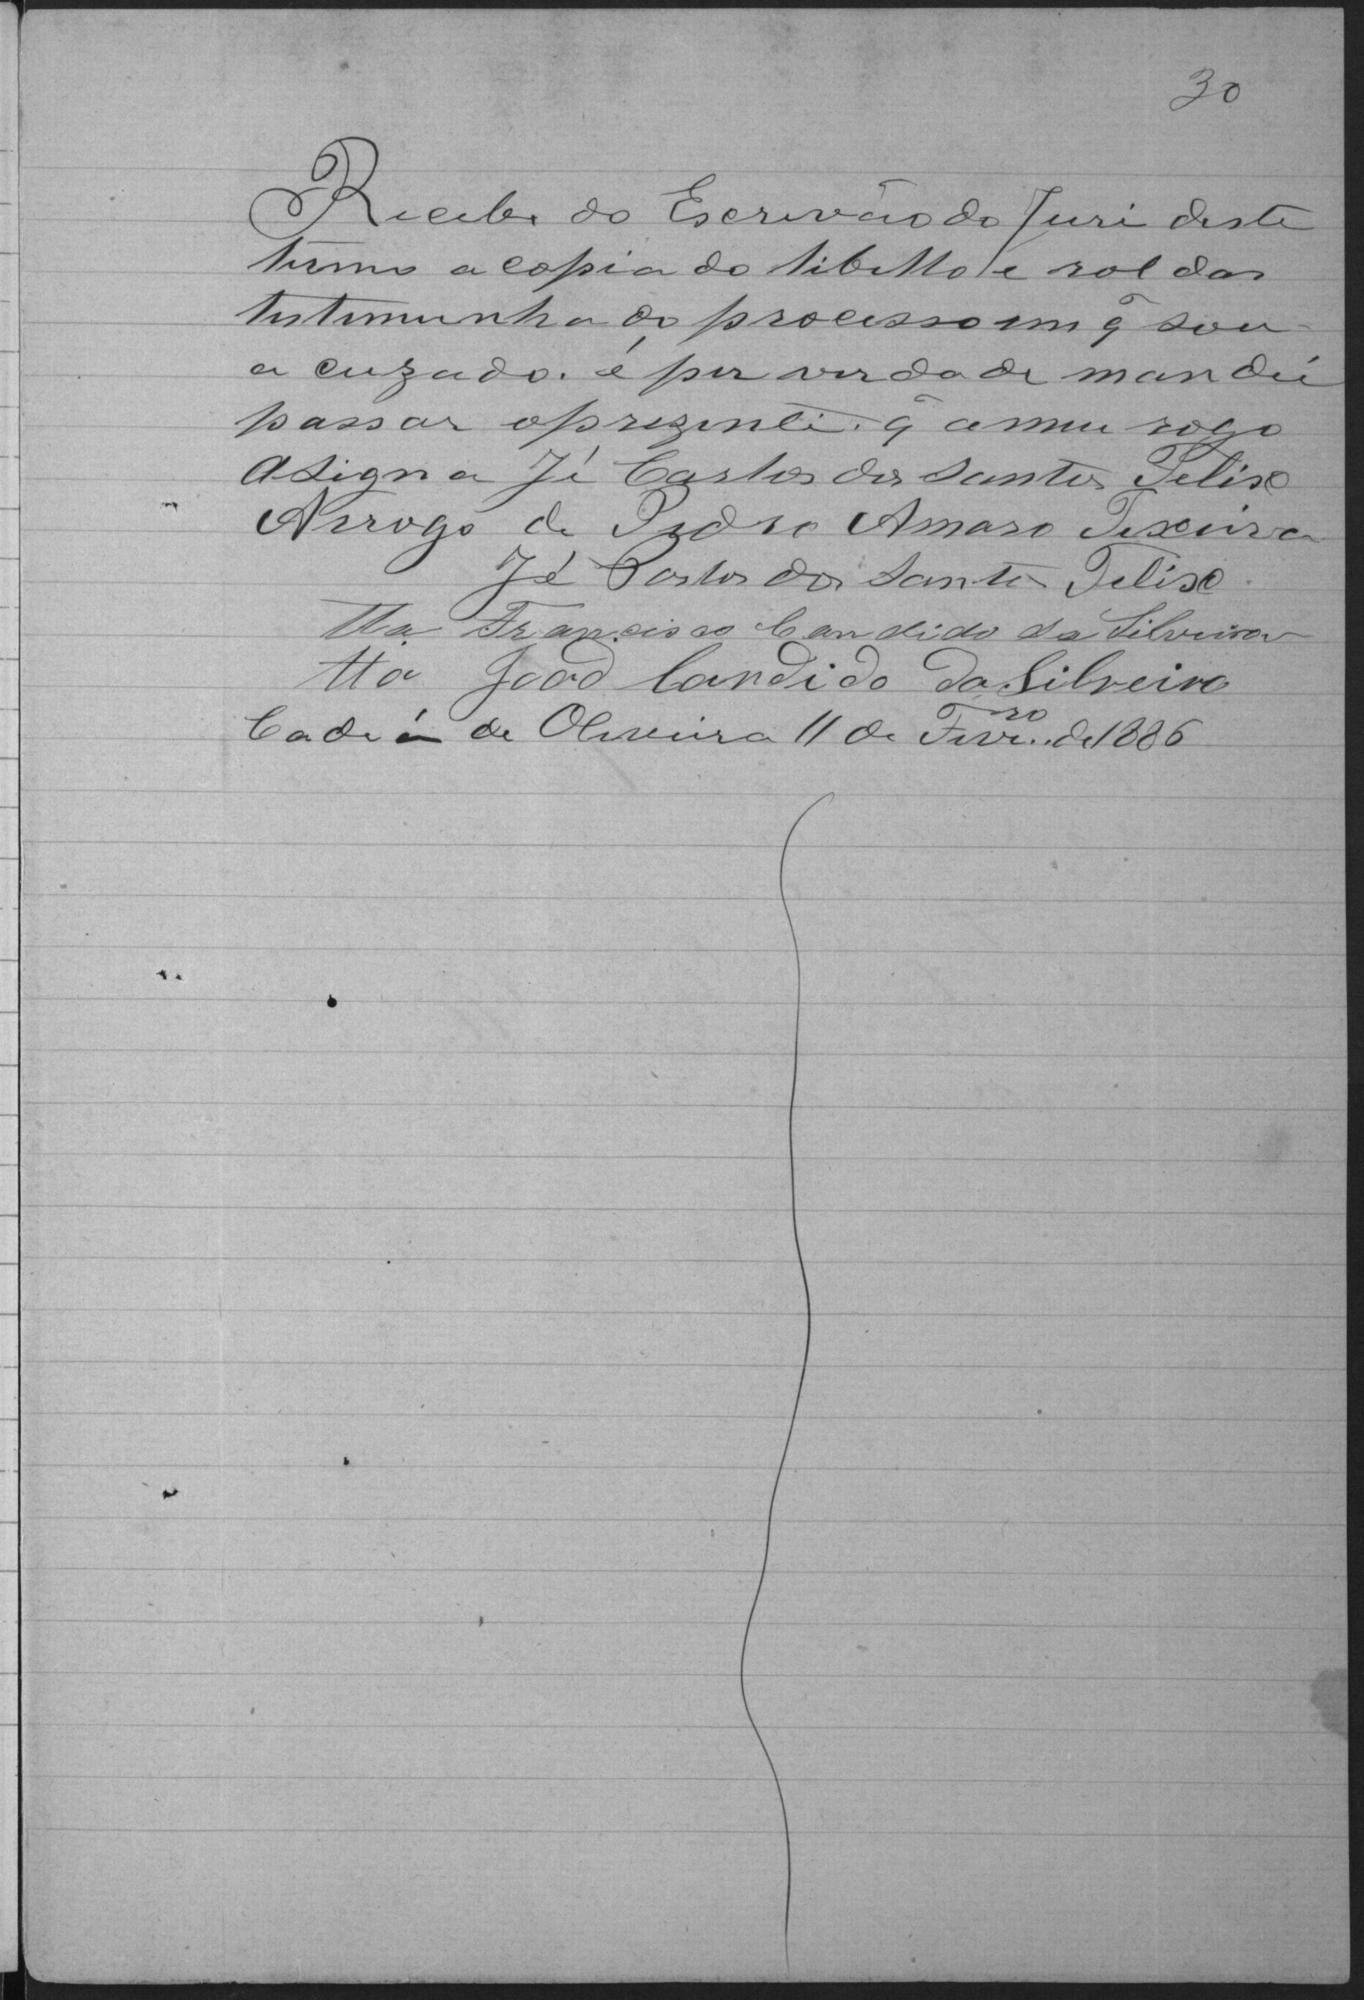 30
Recebi do Escrivão do Juri deste
termo a copia do libello e rol das
testemunha do processo em q̃ sou
a cuzado. é por verdade mandei
passar o prezente. q̃ a meu rogo
asigna Jé Carlos dos Santos Felix
Arrogo de Pedro Amaro Texeira
Jé Carlos dos Santos Felix
Tta Francisco Candido da Silveira
Tta João Candido da Silveira
Cadeia de Oliveira 11 de Fevro. de 1886